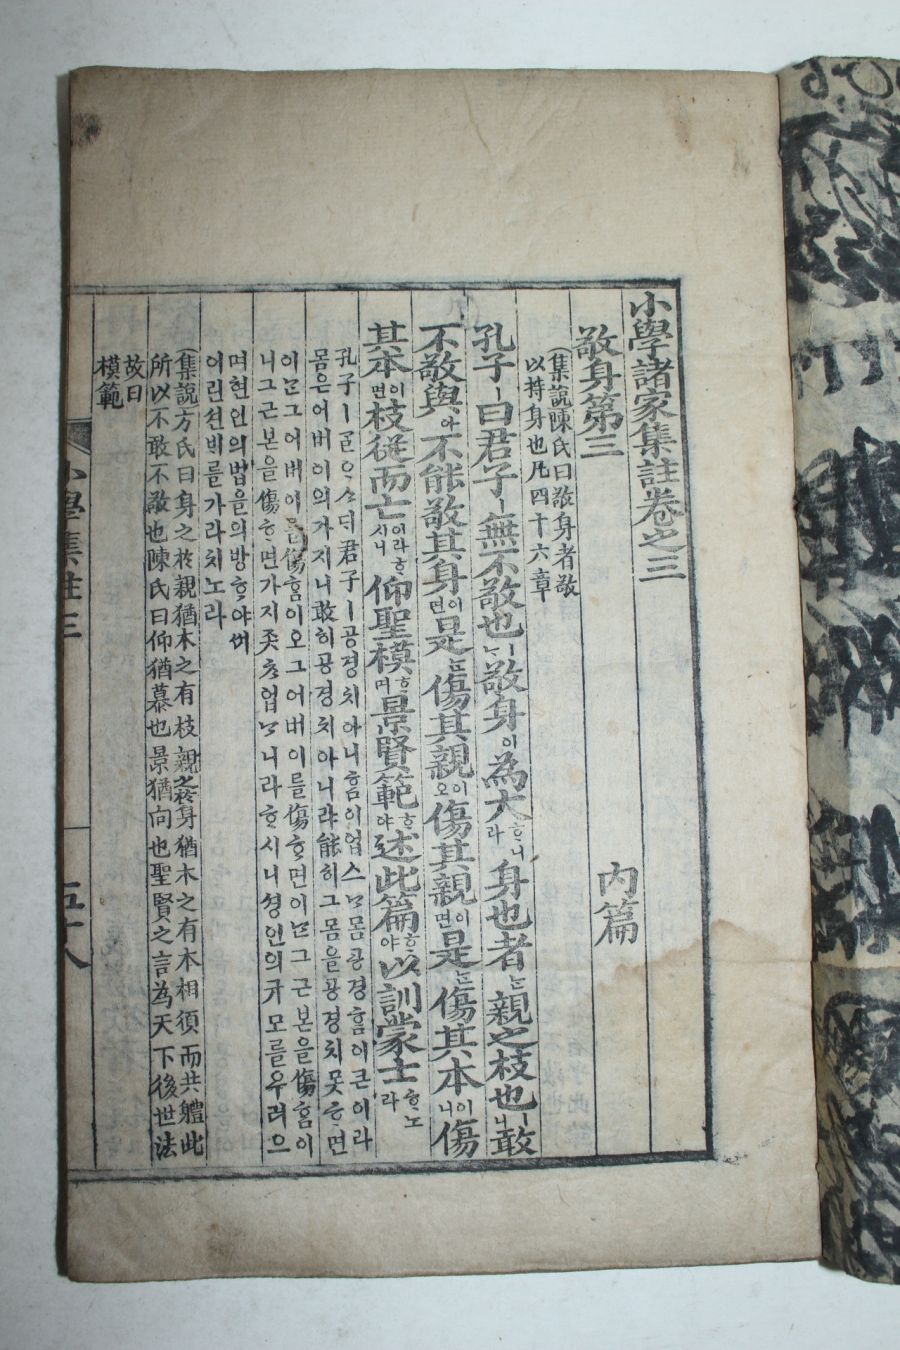 小學諸家集註卷之三
內篇
敬身第三
(集說陳氏曰敬身者敬
以持身也凡四十六章
孔子ㅣ曰君子ㅣ無不敬也ㅣ나敬身이為大ᄒᆞ니라身也者ᄂᆞᆫ親之枝也ㅣ니敢
不敬與아不能敬其身이면是ᄂᆞᆫ傷其親이오傷其親이면是ᄂᆞᆫ傷其本이니傷
其本이면枝從而亡이라ᄒᆞ시니仰聖模ᄒᆞ며景賢範ᄒᆞ야述此篇ᄒᆞ야以訓蒙士ᄒᆞ노라
孔子ㅣᄀᆞᆯᄋᆞ샤ᄃᆡ君子ㅣ공경치아니홈이업스나몸공경홈이큰이라
몸은어버이의가지니敢히공경치아니랴能히그몸을공경치못ᄒᆞ면
이ᄂᆞᆫ그어버이를傷홈이오그어버이를傷ᄒᆞ면이ᄂᆞᆫ그근본을傷홈이
니그근본을傷ᄒᆞ면가지좃ᄎᆞ업ᄂᆞ니라ᄒᆞ시니셩인의규모를우러으
며현인의법을의방ᄒᆞ야ᄡᅥ
어린션비를가라치노라
(集說方氏曰身之於親猶木之有枝親之於身猶木之有本相須而共體此
所以不敢不敬也陳氏曰仰猶慕也景猶向也聖賢之言為天下後世法
故曰
模範
小學集註三
五十八